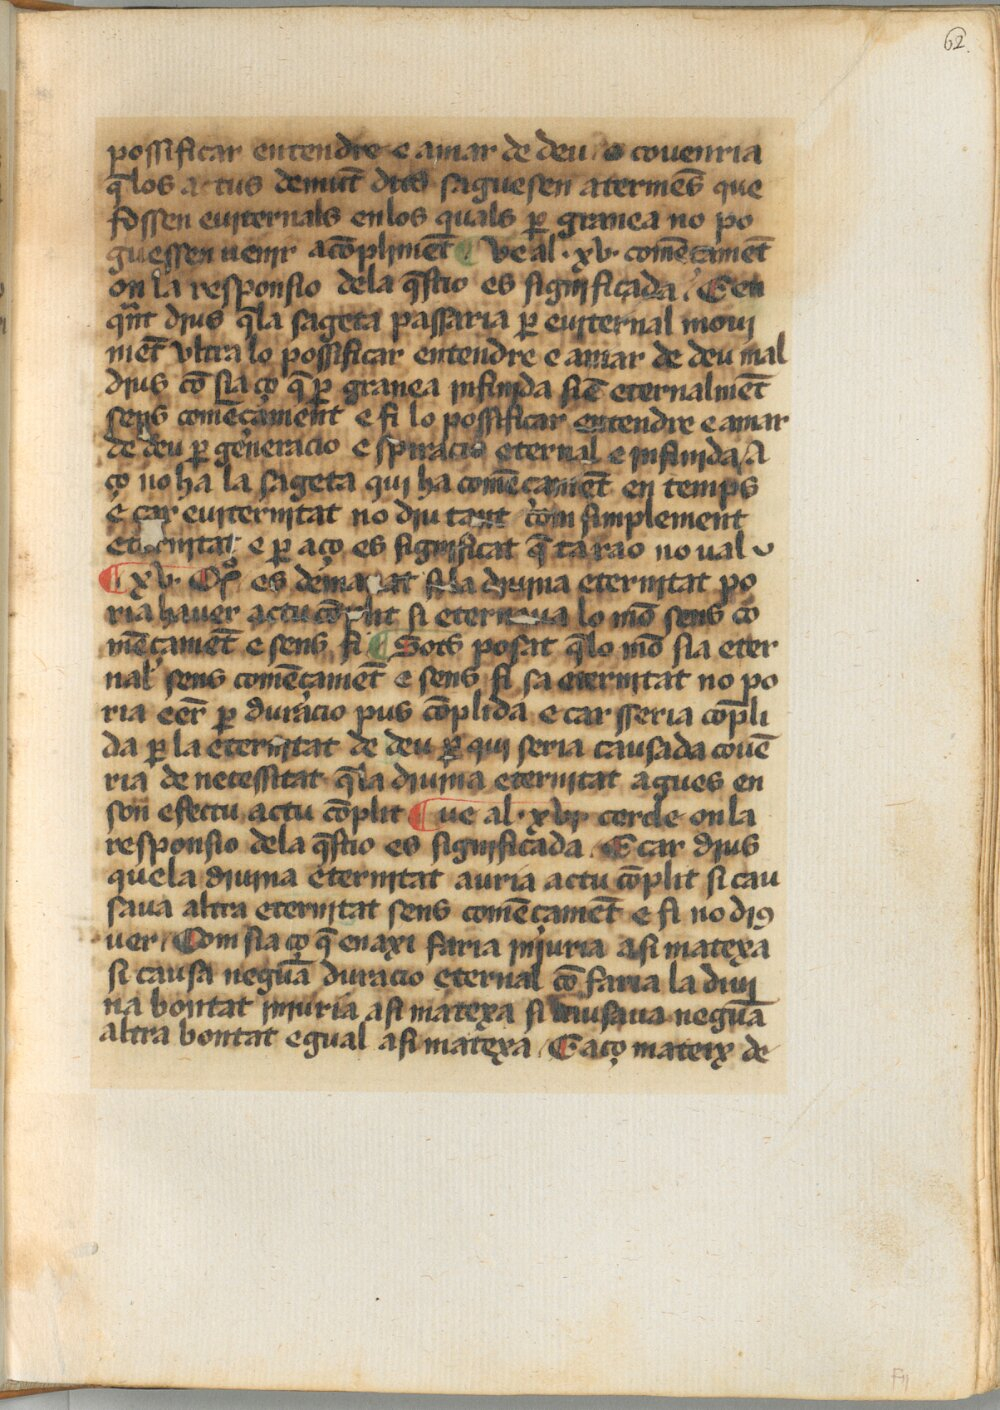 62
possificar entendre e amar de deu e couenria
q̄ los actus demūt dits saguesen atermēs que
fossen euiternals en los quals ꝑ granea no po
guessen uenir a cōplimēt ¶ Ve al · xv · comēçamēt
on la responsio dela q̄stio es significada / E en
qn̄t dius q̄ la sageta passaria ꝑ euiternal moui
mēt vltra lo possificar entendre e amar de deu mal
dius cō sia ço q̄ ꝑ granea infinida siē eternalmēt
sens comēçament e fi lo possificar entendre e amar
de deu ꝑ generacio e spiracio eternal e infinida / A
ço no ha la sageta qui ha comēçamēt en temps
e car euiternitat no diu tant com simplement
eternitat e ꝑ aço es significat q̄ ta rao no val
¶ xv · es demanat si la diuina eternitat po
ria hauer actu cōplit si eternaua lo mō sens co
mēçamēt e sens fi ¶ Sots posat q̄ lo mō sia eter
nal sens comēçamēt e sens fi sa eternitat no po
ria eēr ꝑ duracio pus cōplida e car sseria cōpli
da ꝑ la eternitat de deu ꝑ qui seria causada couē
ria de necessitat q̄ la diuina eternitat agues en
son efectu actu cōplit ¶ ue al · xvi · cercle on la
responsio dela q̄stio es significada / E car dius
que la diuina eternitat auria actu cōplit si cau
saua altra eternitat sens comēçamēt e fi no diꝰ
uer / Com sia ço q̄ enaxi faria injuria asi matexa
si causa neguā duracio eternal cō faria la diui
na bontat injuria asi matexa si causaua neguā
altra bontat egual asi matexa / E aço mateix de